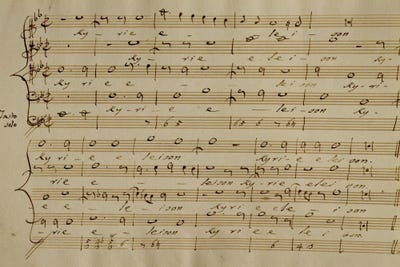 Ky - rie e - - lei - son
Ky - rie e - lei - son
Ky - rie e - - - lei - son Ky -
Ky - ri - e e - - lei - son Ky -
Tasto solo
7 6 5 6 5 6 7
Ky - ri - e e leison Ky - ri - e e lei son.
- rie e - - leison Ky - rie - eleison
e e - lei son Ky ri e e lei son
- ri - e e - leison Ky ri e e lei son.